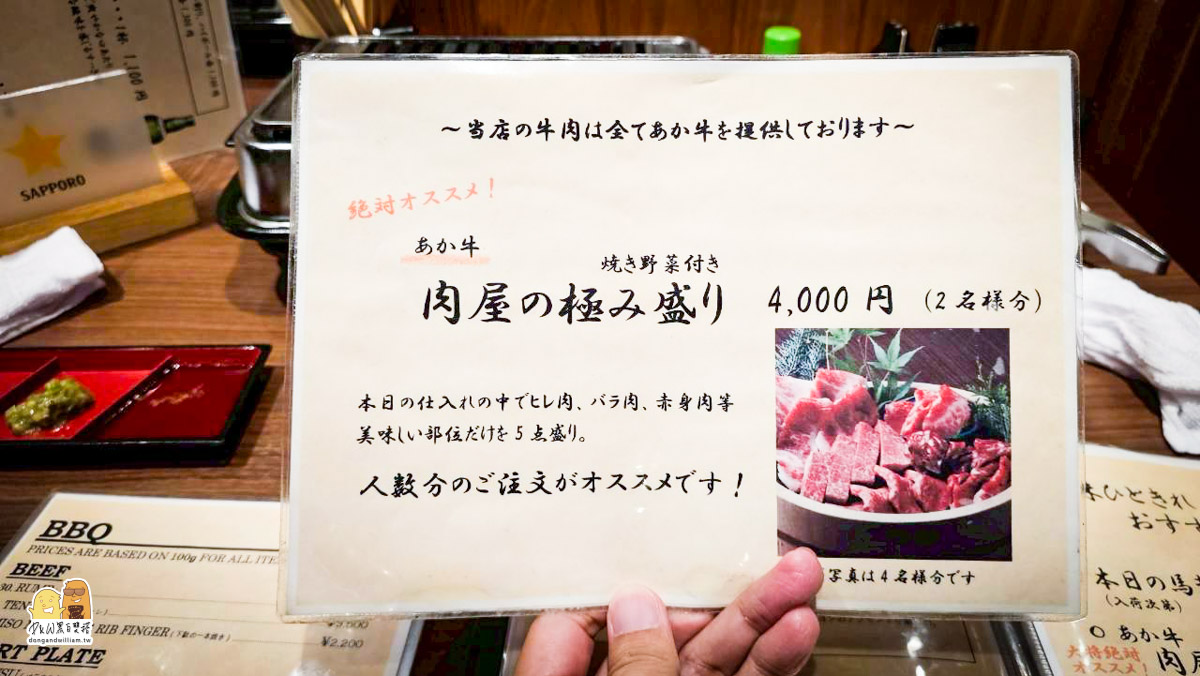 ～当店の牛肉は全てあか牛を提供しております～
絶対オススメ！
あか牛
焼き野菜付き
肉屋の極み盛り 4,000 円 (2名様分)
本日の仕入れの中でヒレ肉、バラ肉、赤身肉等
美味しい部位だけを5点盛り。
人数分のご注文がオススメです！
写真は4名様分です
SAPPORO
1,100円
BBQ
PRICES ARE BASED ON 100g FOR ALL ITE
BEEF
RIB FINGER
¥2,200
RT PLATE
dongandwilliam.tw
ひときれ
おす
本日の馬
(入荷次第)
○ あか牛
大将絶対
オススメ！
肉屋